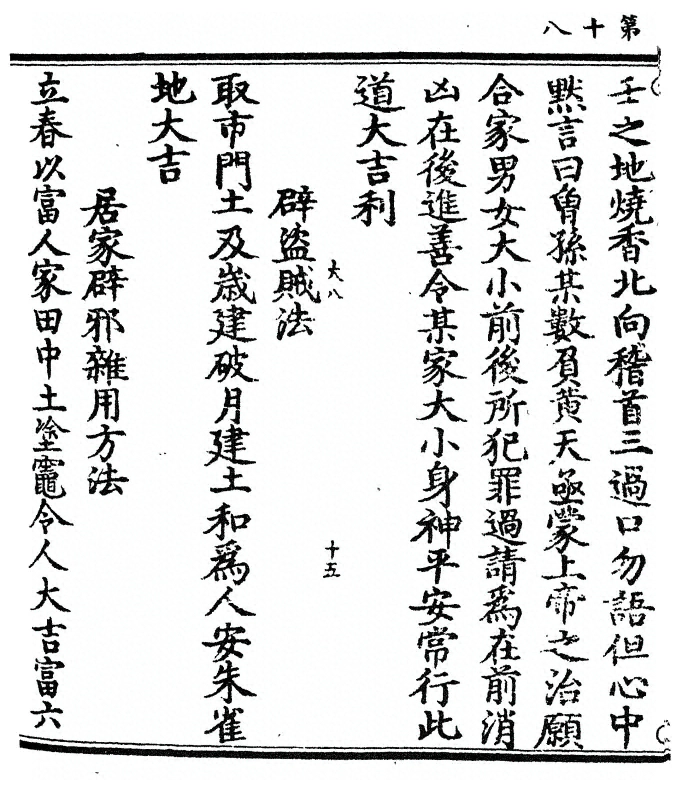 第十八
壬之地燒香北向稽首三過口勿語但心中
黙言曰曽孫某數負黄天亟蒙上帝之治願
合家男女大小前後所犯罪過請爲在前消
凶在後進善令某家大小身神平安常行此
道大吉利
辟盗賊法
大八
十五
取市門土及歳建破月建土和爲人安朱雀
地大吉
居家辟邪雜用方法
立春以富人家田中土塗竈令人大吉富六